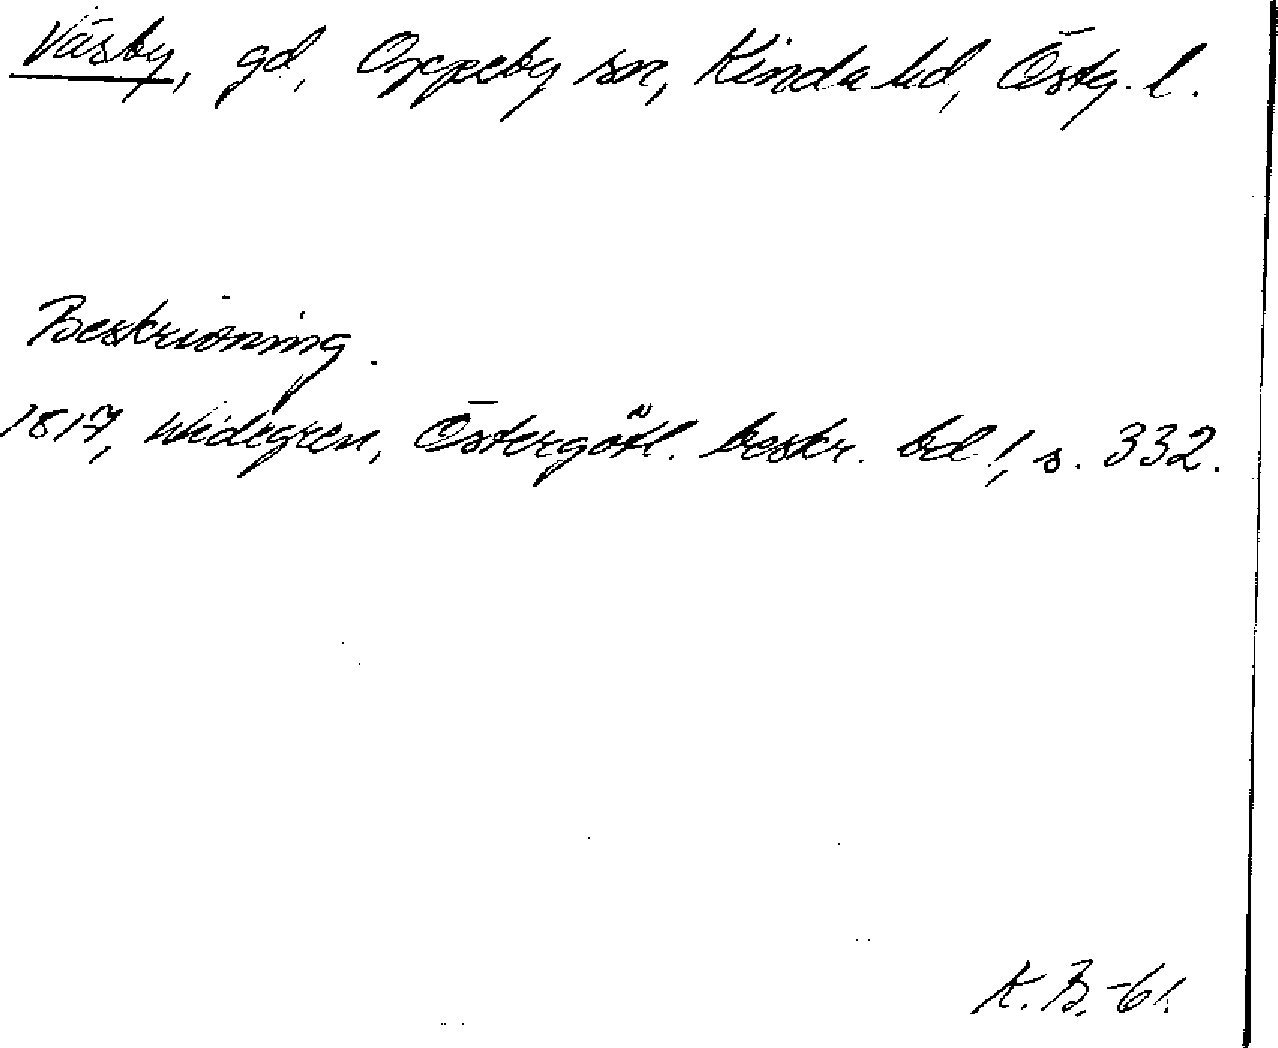 Väsby, gd, Oppeby sn, Kinda hd, Östg. l.
Beskrivning.
1817, Widegren, Östergötl. beskr. bd 1, s. 332.
K.B.-61.